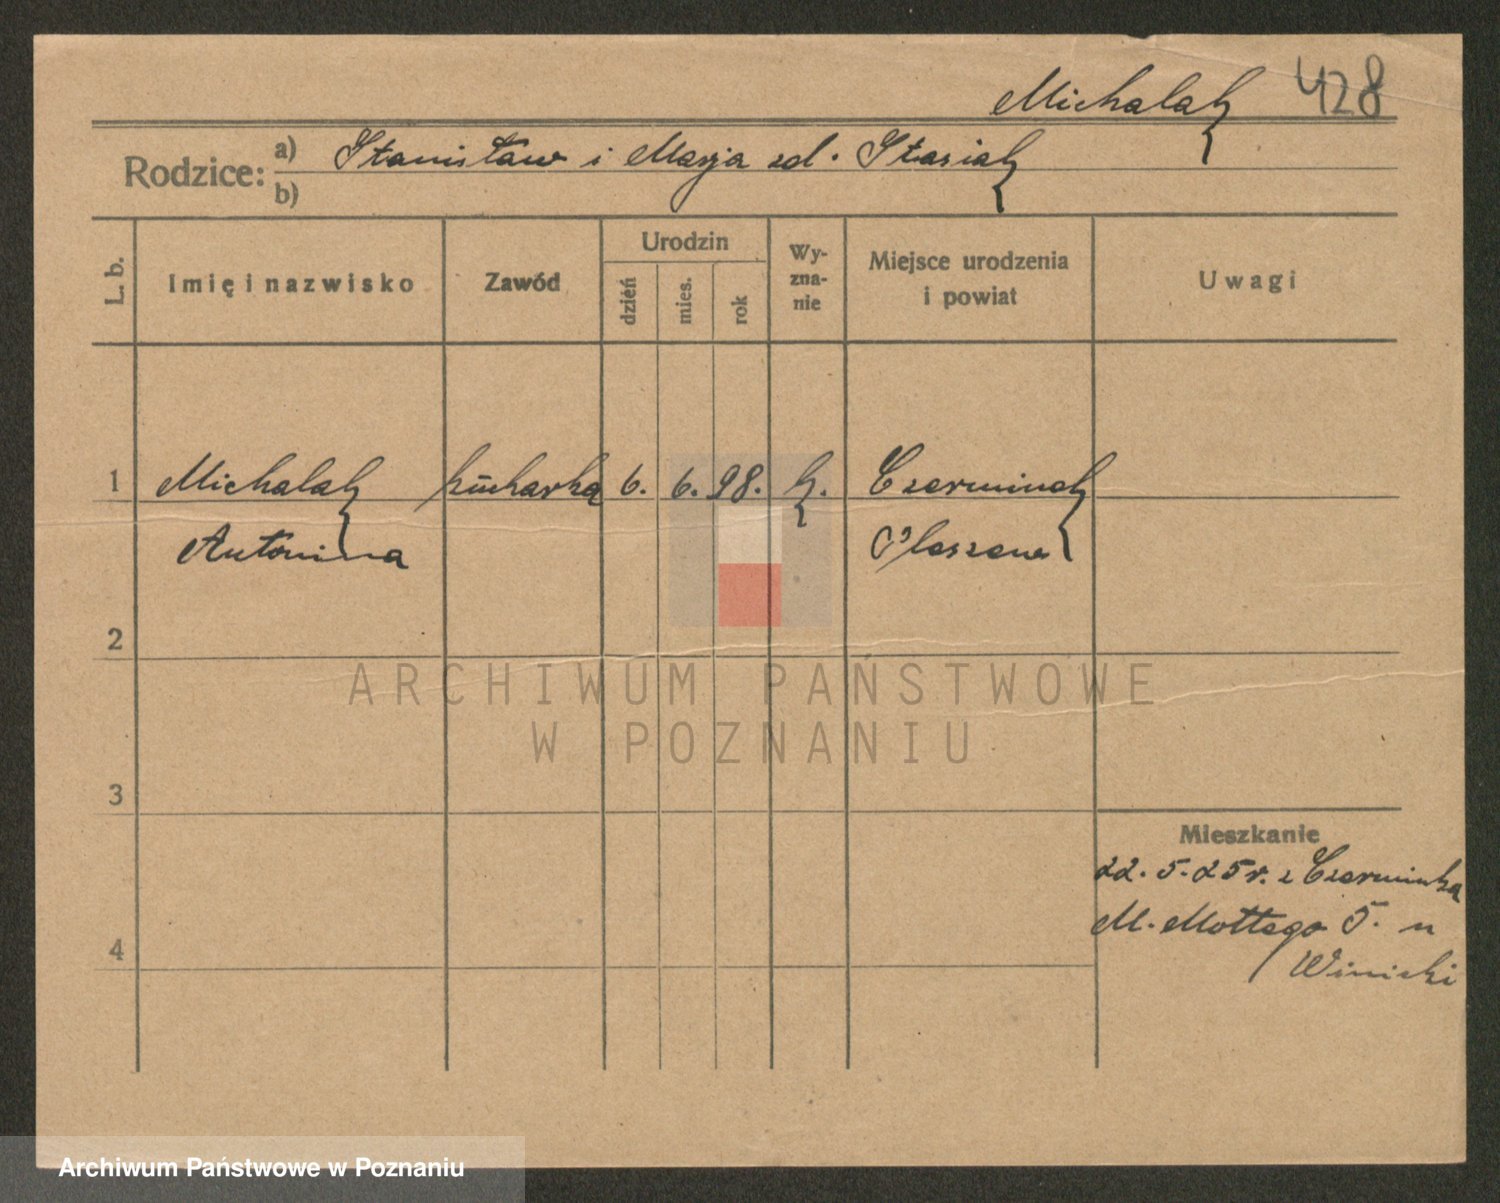 Michalak 428
Rodzice: a) Stanisław i Marja zd. Stasiak
b)
L. b. Imię i nazwisko Zawód Urodzin dzień mies. rok Wy-zna-nie Miejsce urodzenia i powiat Uwagi
1 Michalak kucharka 6. 6. 98. k. Czerminek
Antonina Pleszew
2
ARCHIWUM PAŃSTWOWE
W POZNANIU
3
Mieszkanie
22.5.25r. z Czerminka
M. Mottego 5. u
4
Winicki
Archiwum Państwowe w Poznaniu